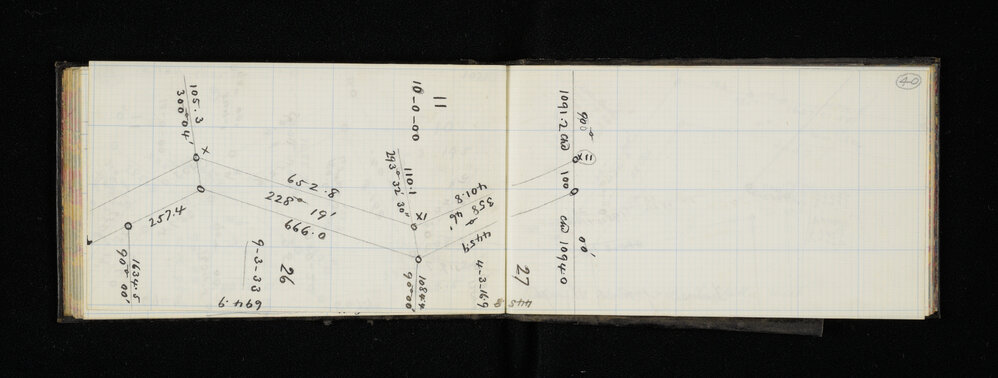 40
105.3
300° 04'
x
652.8
228° 19'
666.0
257.4
1634.5
90° 00'
9-3-33
694.9
26
11
10-0-00
110.1
293° 32' 30"
401.8
358° 46'
4459
1084.4
90° 00'
4-3-16.9
27
445.8
1091.2
90°
11
100
00'
1094.0